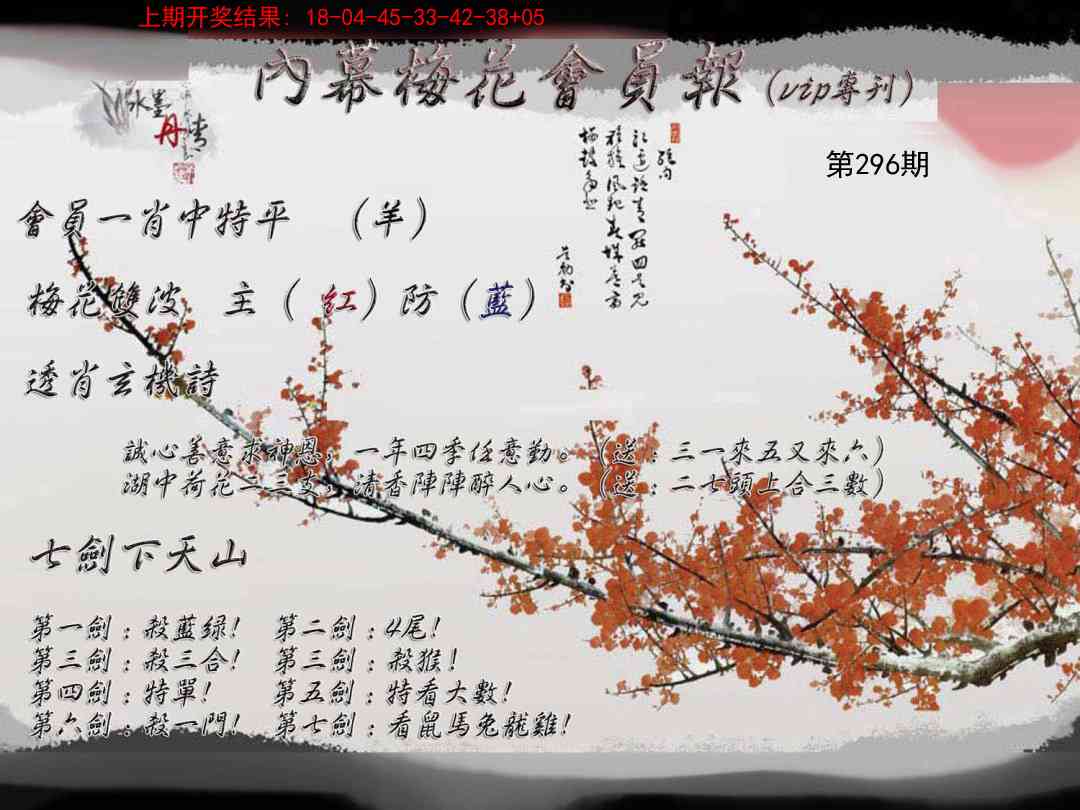 上期开奖结果: 18-04-45-33-42-38+05
內幕梅花會員報(vip專刊)
水墨
丹青
第296期
會員一肖中特平 (羊)
梅花雙波 主(紅)防(藍)
透肖玄機詩
誠心善意求神恩，一年四季任意勤。(送:三一來五又來六)
湖中荷花二三支，清香陣陣醉人心。(送:二七頭上合三數)
七劍下天山
第一劍:殺藍绿! 第二劍:4尾!
第三劍:殺三合! 第三劍:殺猴!
第四劍:特單! 第五劍:特看大數!
第六劍:殺一門! 第七劍:看鼠馬兔龍雞!